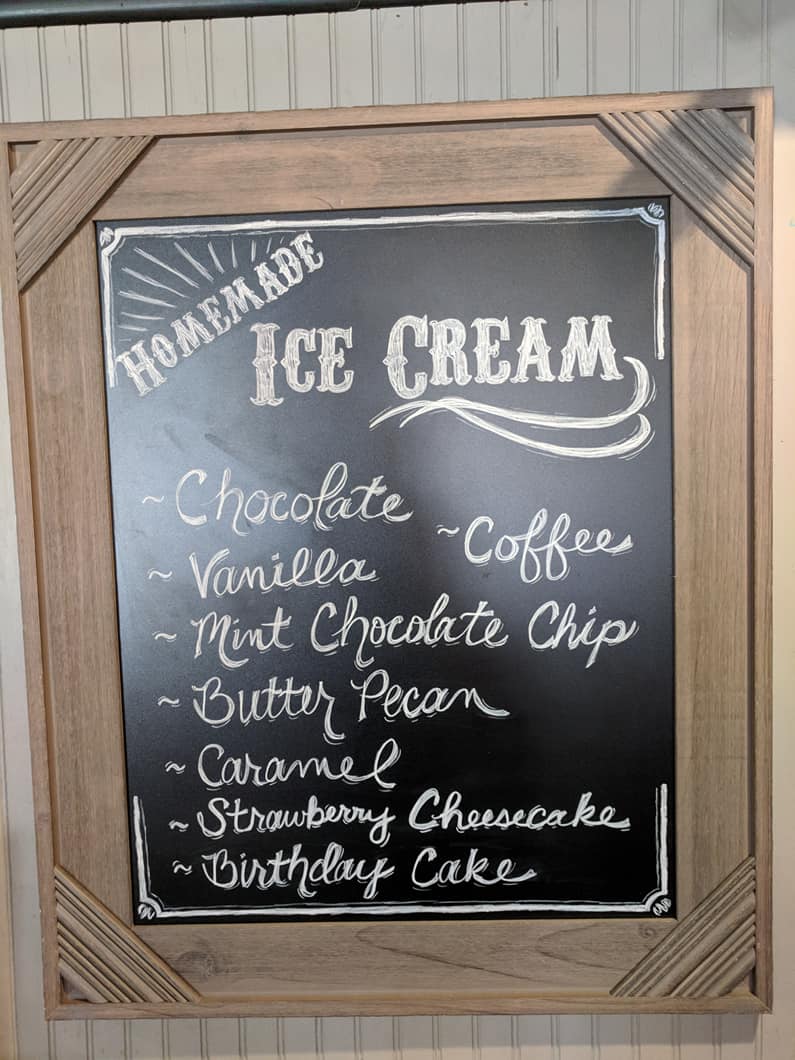 HOMEMADE
ICE CREAM
~ Chocolate
~ Coffee
~ Vanilla
~ Mint Chocolate Chip
~ Butter Pecan
~ Caramel
~ Strawberry Cheesecake
~ Birthday Cake